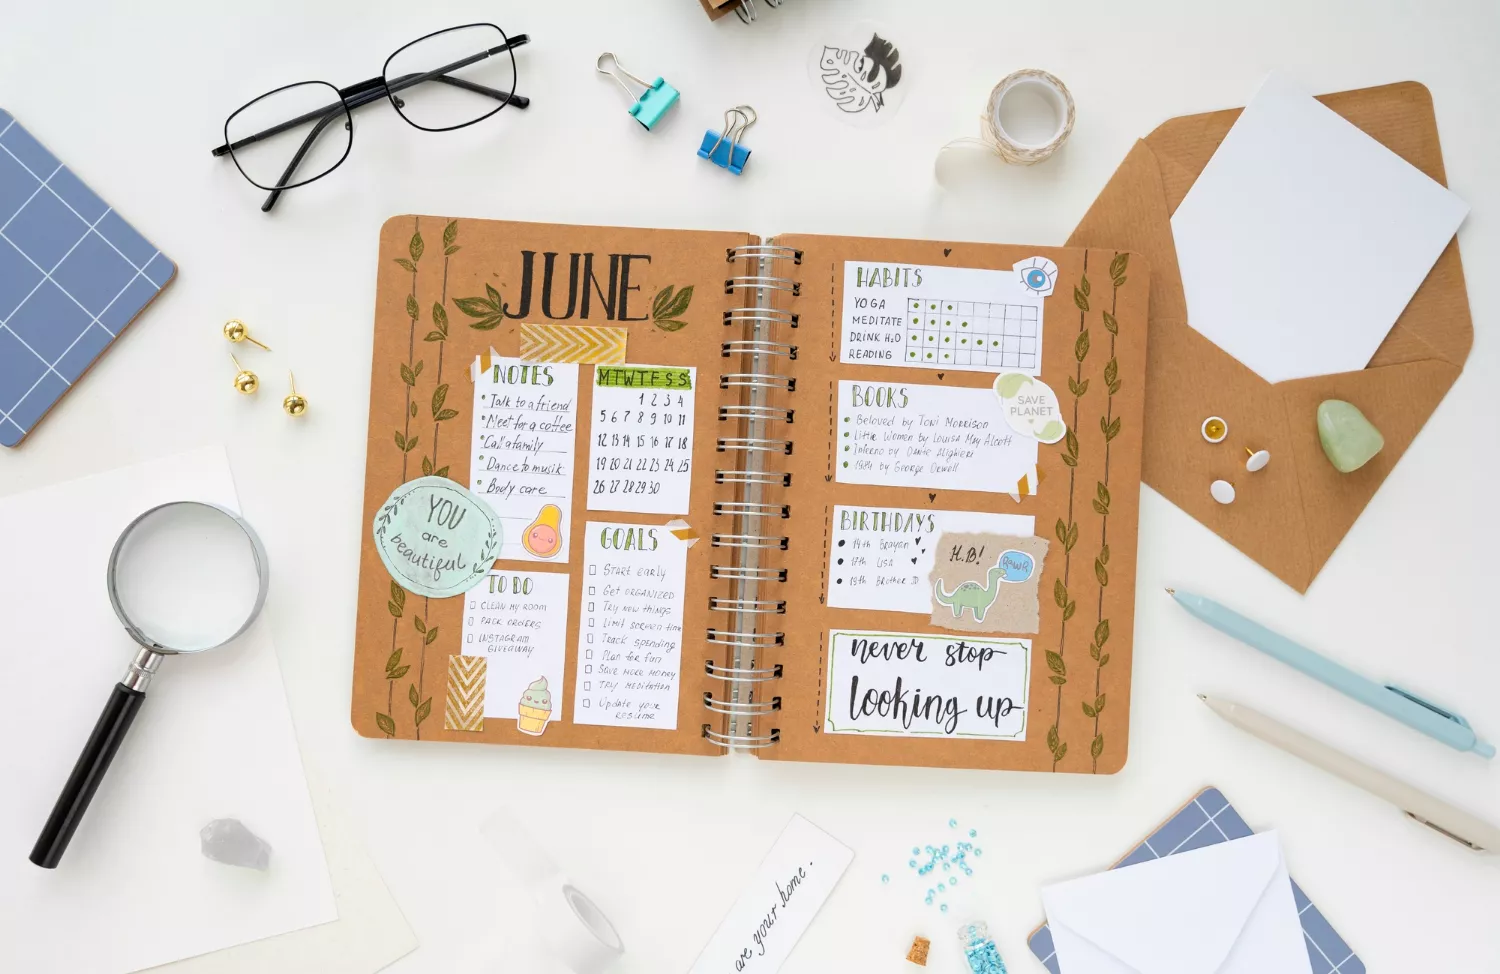 JUNE
NOTES
Talk to a friend
Meet for a coffee
Call a family
Dance to musik
Body care
MTWTFSS
1 2 3 4
5 6 7 8 9 10 11
12 13 14 15 16 17 18
19 20 21 22 23 24 25
26 27 28 29 30
YOU
are
beautiful
TO DO
CLEAN MY ROOM
PACK ORDERS
INSTAGRAM
GIVEAWAY
GOALS
START early
Get ORGANIZED
Try new things
Limit screen time
Track spending
Plan for fun
Save more money
TRY MEDITATION
Update your
resume
HABITS
YOGA
MEDITATE
DRINK H2O
READING
BOOKS
Beloved by Toni Morrison
Little Women by Louisa May Alcott
Inferno by Dante Alighieri
1984 by George Orwell
SAVE
PLANET
BIRTHDAYS
14th Brayan
17th LISA
19th Brother :D
H.B!
RAWR
never stop
looking up
are your home.